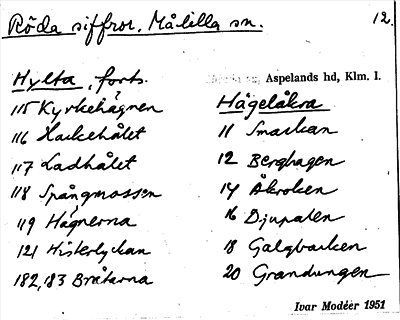 Röda siffror. Målilla sn.
12.
Hylta, forts.
115 Kyrkehägnen
116 Hackehålet
117 Ladhålet
118 Spångmossen
119 Hägnerna
121 Histerlyckan
182, 183 Bråtarna
Aspelands hd, Klm. l.
Hägelåkra
11 Smackan
12 Berghagen
14 Åkroken
16 Djupalen
18 Galgbacken
20 Grandungen
Ivar Modéer 1951